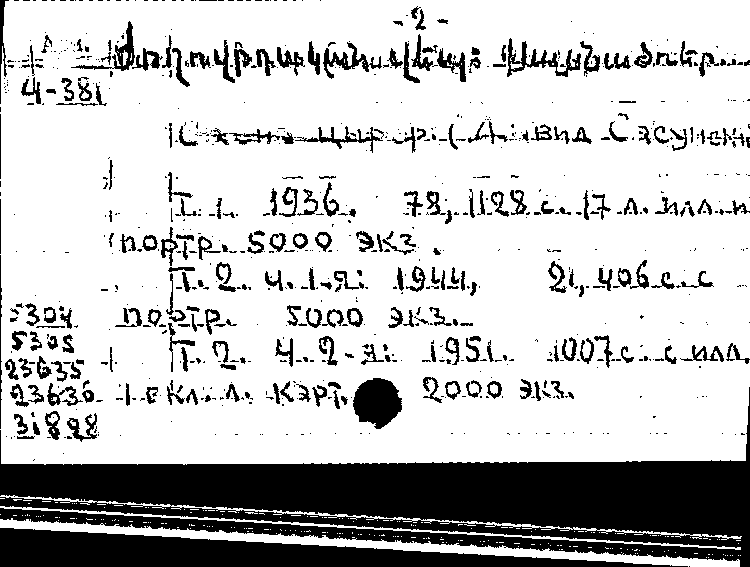 - 2 -
4-381
Т. 1. 1936. 78, 1128 с. 17 л. илл. и
портр. 5000 экз.
Т. 2. ч. 1-я: 1944, 21, 406 с. с
5304 портр. 5000 экз.
5305
Т. 2. ч. 2-я: 1951. 1007 с. с илл.
23635
23636 1 вкл. л. карт. 2000 экз.
31828